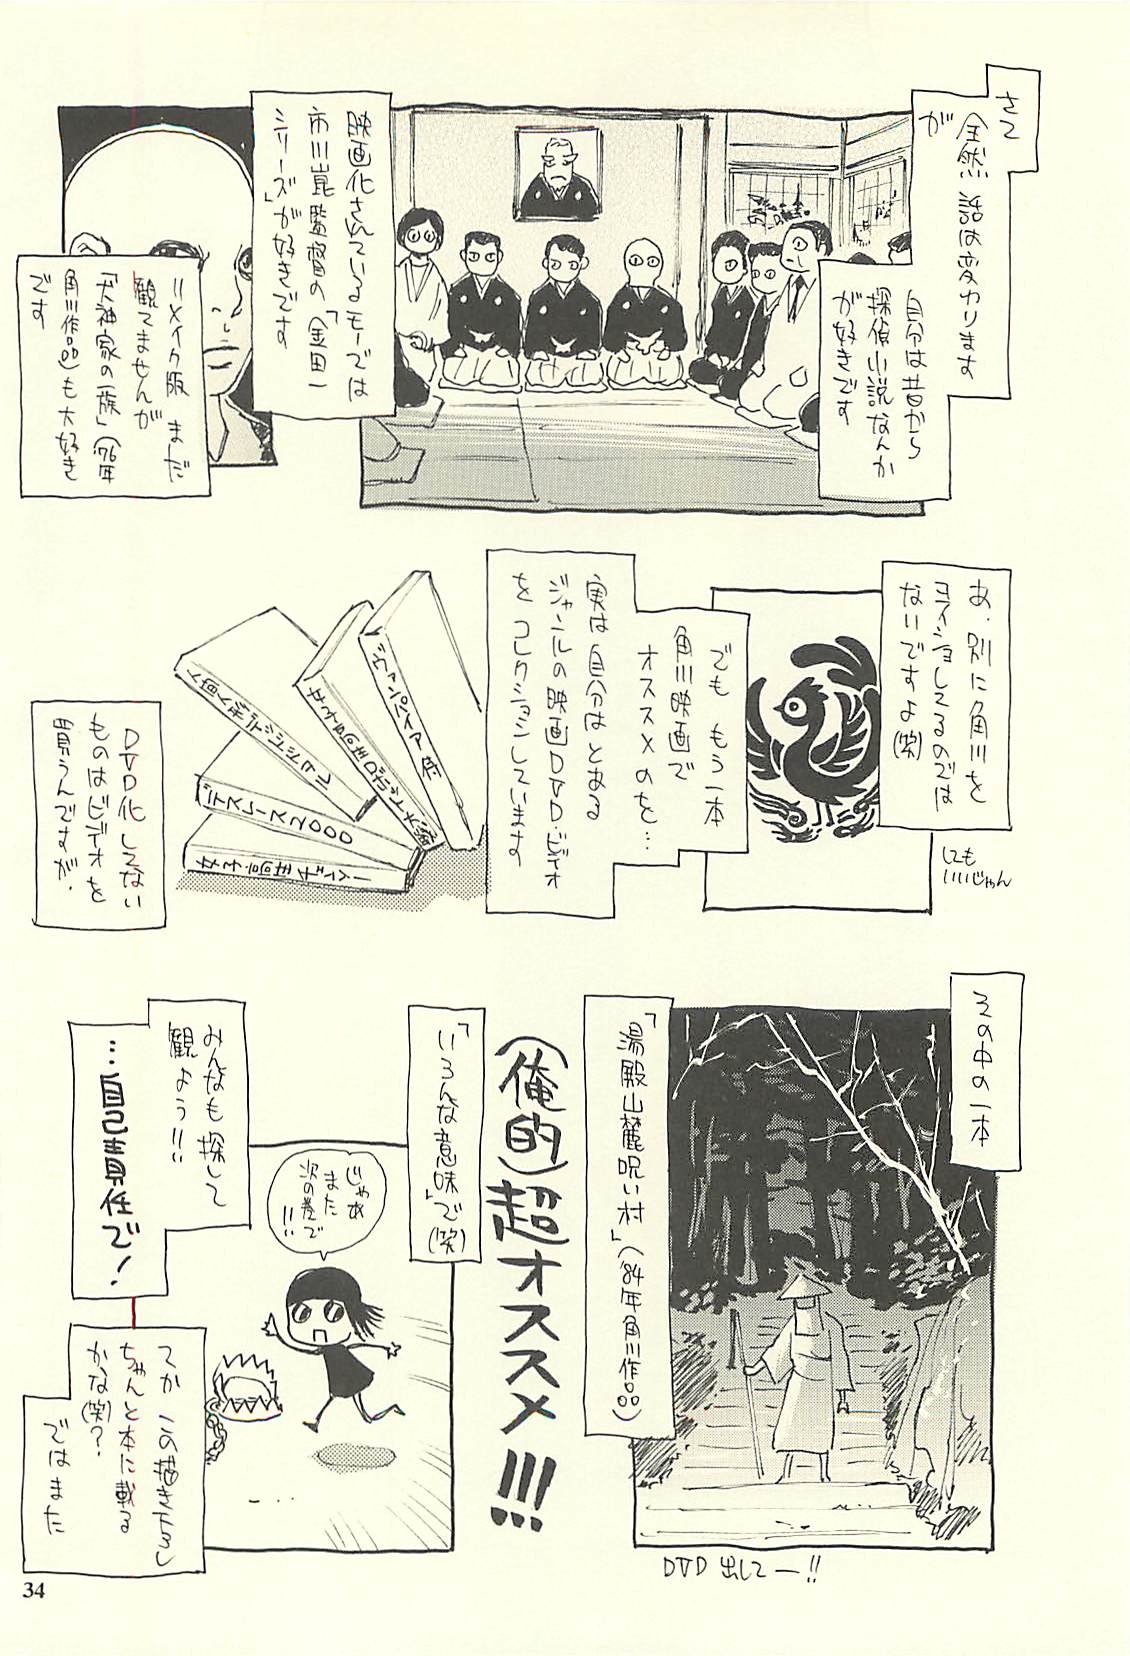 さて
全然 話は変わります
が
自分は昔から
探偵小説なんか
が好きです
映画化されているモノでは
市川崑監督の「金田一
シリーズ」が好きです
リメイク版 まだ
観てませんが
「犬神家の一族」('76年
角川作品)も大好き
です
あ、別に角川を
ヨイショしてるのでは
ないですよ(笑)
しても
いいじゃん
でも もう一本
角川映画で
オススメのを…
実は自分はとある
ジャンルの映画DVD・ビデオ
をコレクションしています
DVD化してない
ものはビデオを
買うんですが、
デスレース2000
その中の一本
「湯殿山麓呪い村」('84年角川作品)
DVD 出してー!!
(俺的)超オススメ!!!
「いろんな意味」で(笑)
じゃあ
また
次の巻で
!!
みんなも探して
観よう!!
…自己責任で!
てか この描き下ろし
ちゃんと本に載る
かな(笑)?
ではまた
34